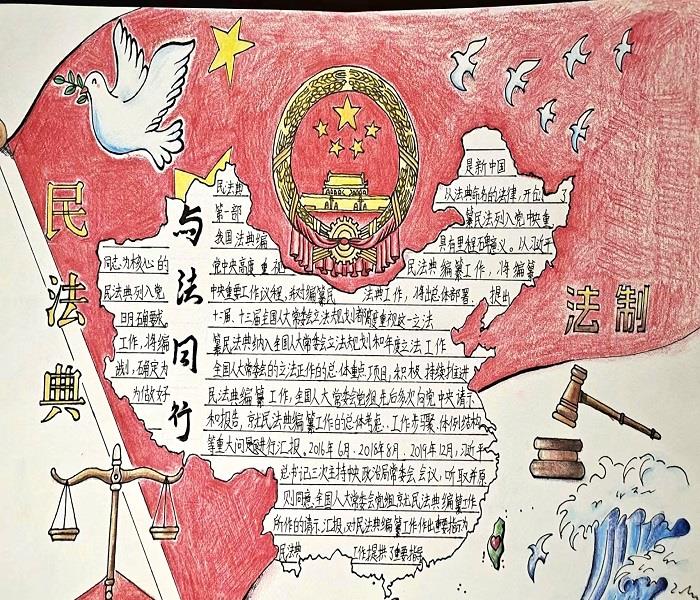 民法典
与法同行
法制
民法典 是新中国
第一部 以法典命名的法律，开创
我国法典编 纂民法列入党中央重
具有里程碑意义。以习近平
同志为核心的 党中央高度重视 民法典编纂工作，将编纂
民法典列入党 中央重要工作议程，并对编纂民 法典工作，将出总体部署、提出
十二届、十三届全国人大常委会立法规划都高度重视这一立法
工作，将编 纂民法典纳入全国人大常委会立法规划和年度立法工作
全国人大常委会的立法工作的总体重点项目，积极持续推进
为做好 民法典编纂工作，全国人大常委会党组先后多次向党中央请示
和报告，就民法典编纂工作的总体考虑、工作步骤、体例结构
等重大问题进行汇报。2016年6月、2018年8月、2019年12月，习近平
总书记三次主持中央政治局常委会会议，听取并原
则同意全国人大常委会党组就民法典编纂工作
所作的请示汇报，对民法典编纂工作作出重要指示，为
民法典 工作提供了重要指导